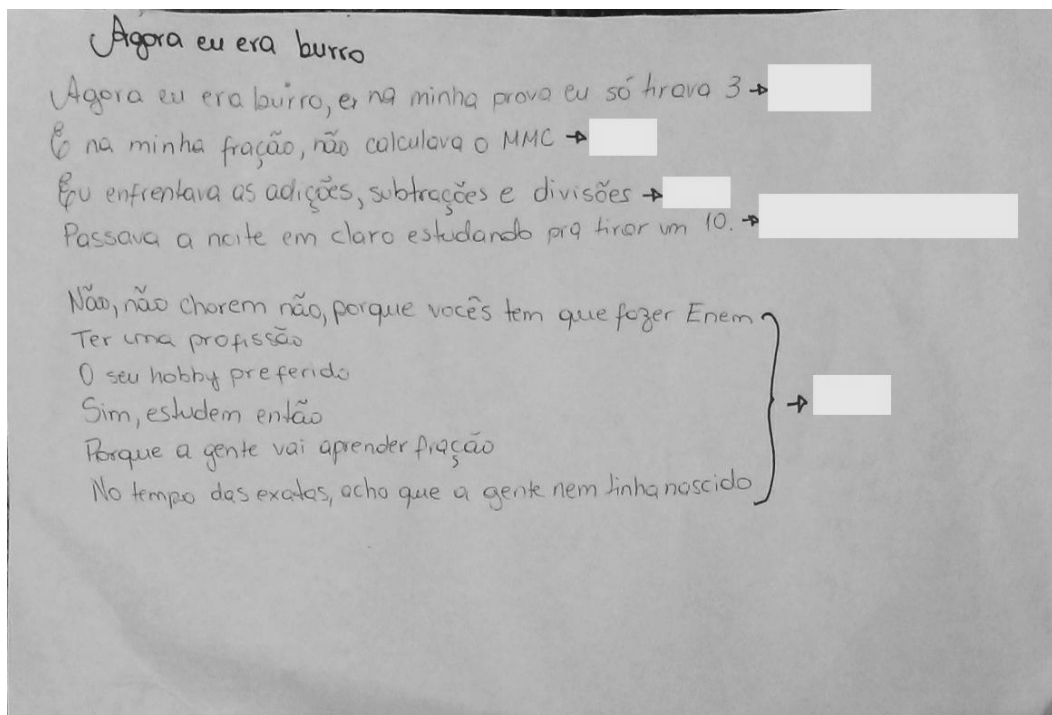 Agora eu era burro
Agora eu era burro, e na minha prova eu só tirava 3 →
E na minha fração, não calculava o MMC →
Eu enfrentava as adições, subtrações e divisões →
Passava a noite em claro estudando pra tirar um 10. →
Não, não chorem não, porque vocês tem que fazer Enem
Ter uma profissão
O seu hobby preferido
Sim, estudem então
Porque a gente vai aprender fração
No tempo das exatas, acho que a gente nem tinha nascido